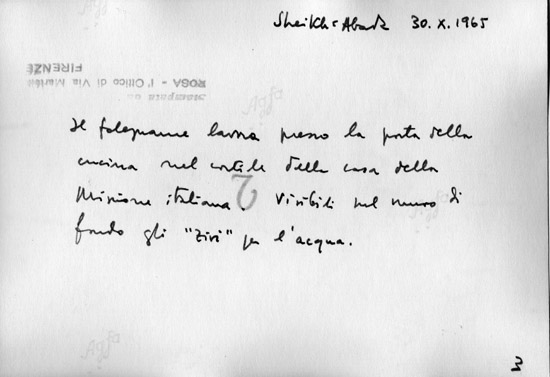 Sheikh-Abada 30.X.1965
Stampata da
ROSA - l'Ottico di Via Martel
FIRENZE
Il falegname lavora presso la porta della
cucina nel cortile della casa della
Missione italiana. Visibili nel muro di
fondo gli "zivi" per l'acqua.
2
3